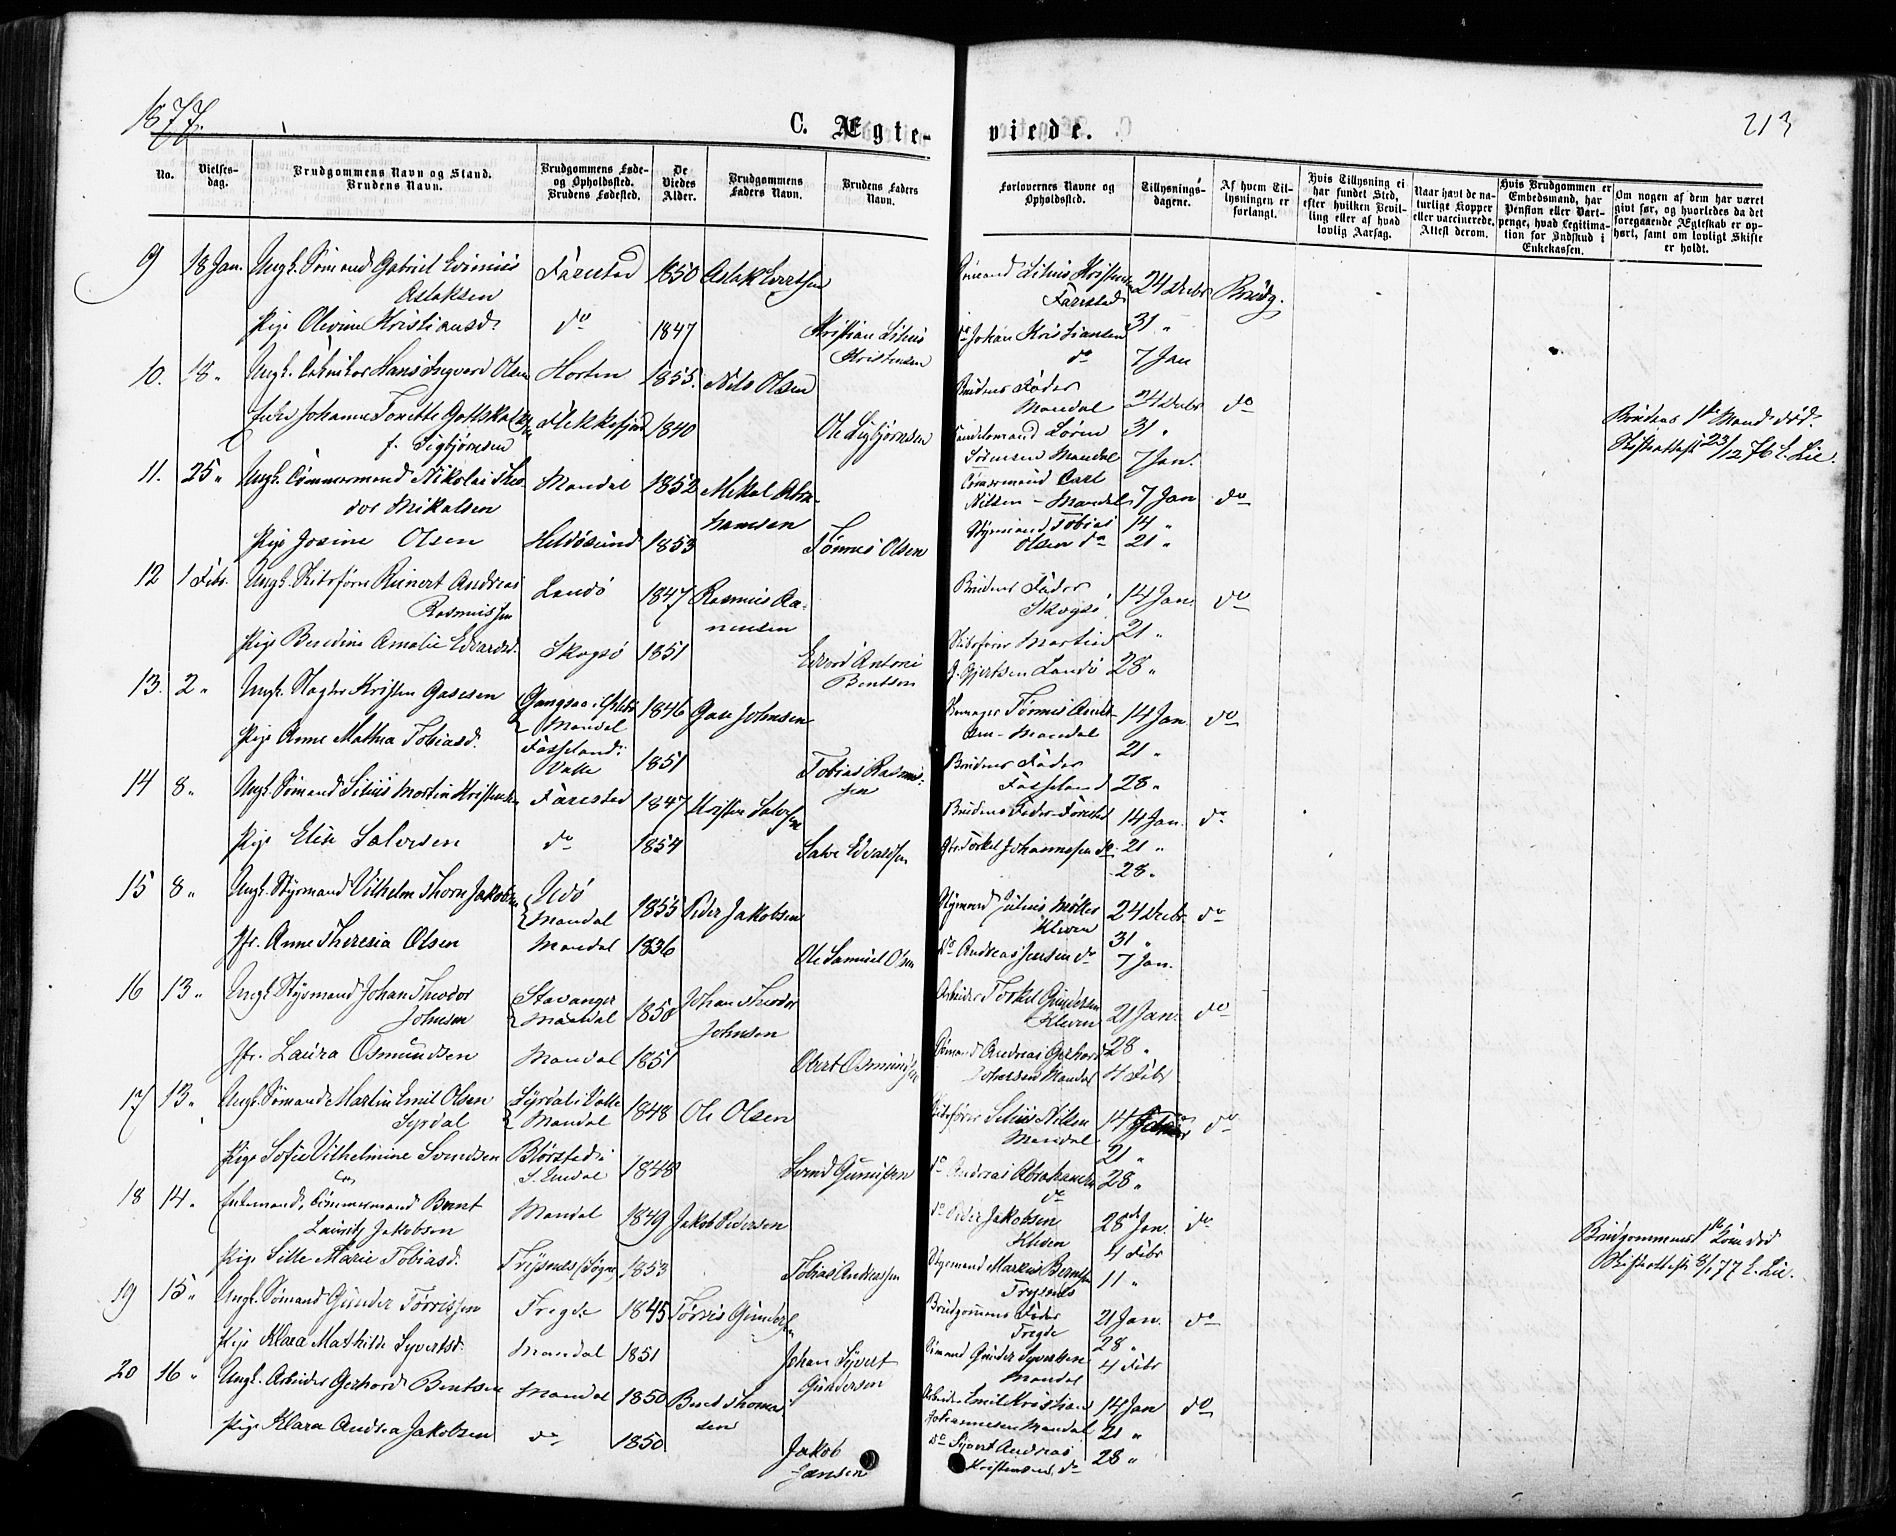 1877.
213
C. Ægte-
viede.
No.
Vielses-
dag.
Brudgommens Navn og Stand.
Brudens Navn.
Brudgommens Føde-
og Opholdssted.
Brudens Fødested.
De
Viedes
Alder.
Brudgommens
Faders Navn.
Brudens Faders
Navn.
Forlovernes Navne og
Opholdssted.
Tillysnings-
dagene.
Af hvem Til-
lysningen er
forlangt.
Hvis Tillysning ei
har fundet Sted,
efter hvilken Bevil-
ling eller af hvad
lovlig Aarsag.
Naar havt de na-
turlige Kopper
eller vaccinerede.
Attest derom.
Hvis Brudgommen er
Embedsmand, har
Pension eller Vart-
penge, hvad Legitima-
tion for Indskud i
Enkekassen.
Om nogen af dem har været
givt før, og hvorledes da det
foregaaende Ægteskab er op-
hørt, samt om lovligt Skifte
er holdt.
9 18 Jan. Ungk. Sømand Gabriel Aslaksen Farestad 1850 Aslak 24 Decbr Brudg.
Pige Olevine Kristiansd. do 1847 Kristian Kristensen do Johan Kristiansen do 31 " 7 Jan
10. 18 " Ungk. Hans Ingvard Olsen Horten 1855. Nils Olsen Brudens Fader Mandal 24 Decbr do
Enke Johanne Tonette f. Sigbjørnsen Flekkefjord 1840 Ole Sigbjørnsen Sørensen Mandal 31 " 7 Jan.
Brudens 1ste Mand død.
Skifteattest 23/12 76 E. Lie.
11. 25 " Ungk. Tømmermand Nikolai Theodor Mikalsen Mandal 1852 Mikal Abrahamsen Tømmermand Carl Nilsen - Mandal 7 Jan do
Pige Josine Olsen 1853 Tønnes Olsen Styrmand Tobias Olsen do 14 " 21 "
12 1 Febr. Ungk. Skibsfører Reinert Andreas Rasmussen Landø 1847 Rasmus Brudens Fader Skogsø 14 Jan. do
Pige Amalie Edvardsd. Skogsø 1851 Edvard Antoni Bentsen Skibsfører G. Gjertsen Landø 21 " 28 "
13. 2 " Ungk. Kristen Gasesen Mandal 1846 Gase Johnsen Tønnes - Mandal 14 Jan. do
Pige Anne Mathea Tobiasd. Fasseland i Valle 1851 Tobias Rasmussen Brudens Fader Fasseland 21 " 28 "
14 8 " Ungk. Sømand Martin Kristensen Farestad 1847 Kristen Salvesen Brudens Fader Farestad 14 Jan. do
Pige Elise Salvesen do 1854 Salve Edvardsen Torkel Johannessen do 21 " 28 "
15 8 " Ungk. Styrmand Vilhelm Thorn Jakobsen Udø Mandal 1855 Peder Jakobsen Styrmand Julius Møller Kleven 24 Decbr. do
Jfr. Anne Theresia Olsen Mandal 1836 Ole Samuel Olsen do Andreas Jensen do 31 " 7 Jan.
16 13 " Ungk. Styrmand Johan Theodor Johnsen Stavanger Mandal 1850 Johan Theodor Johnsen Arbeider Torkel Gundersen Kleven 21 Jan. do
Jfr. Laura Osmundsen Mandal 1851 Osmundsen Sømand Andreas Gerhard Mandal 28 " 4 Febr
17 13 " Ungk. Sømand Martin Emil Olsen Syrdal Syrdal i Valle Mandal 1848 Ole Olsen Skibsfører Nilsen Mandal 14 do
Pige Sofie Vilhelmine Svendsen 1848 Svend do Andreas Abrahamsen do 21 " 28 "
18 14 " Enkemand, Tømmermand Bernt Lauritz Jakobsen Mandal 1849 Jakob Pedersen do Peder Jakobsen Kleven 28de Jan. do
Pige Sille Marie Tobiasd. 1853 Tobias Andreassen Styrmand Markus Berntsen 4 Febr 11 "
Brudgommens 1ste Kone død
Skifteattest 3/1 77 E. Lie.
19 15 " Ungk. Sømand Gunder Tørrissen Tregde 1845 Tørris Gundersen Brudgommens Fader Tregde 21 Jan. do
Pige Klara Mathilde Syvertsd. Mandal 1851 Johan Syvert Gundersen Sømand Gunder Syvertsen Mandal 28 " 4 Febr
20 16 " Ungk. Arbeider Gerhard Bentsen Mandal 1850 Bent Thomassen Arbeider Emil Kristian Johannesen Mandal 14 Jan do
Pige Klara Andrea Jakobsen do 1850 Jakob Jansen do Syvert Andreas Kristensen do 21 " 28 "